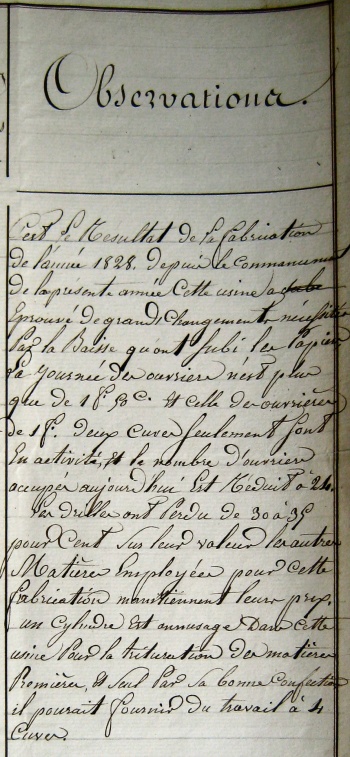 Observations.
C'est le Resultat de la fabrication
de l'année 1828. depuis le commancement
de la presente année Cette usine a subi
Eprouvé de grands Changements nécessités
Par la Baisse qu'ont Subi les Papiers
La journée des ouvriers n'est plus
que de 1f. 50ci. Et celle des ouvrières
de 1f. deux Cuves Seulement Sont
En activité, et le nombre d'ouvriers
occupés aujourd'hui Est Réduit à 24.
Les drilles ont Perdu de 30 à 35
pour Cent Sur leur valeur les autres
Matières Employées pour cette
fabrication maintiennent leurs prix.
un Cylindre Est en usage Dans Cette
usine Pour la trituration des matières
Premières, et Seul Par Sa bonne Confection
il pourait fournir du travail à 4
Cuves.